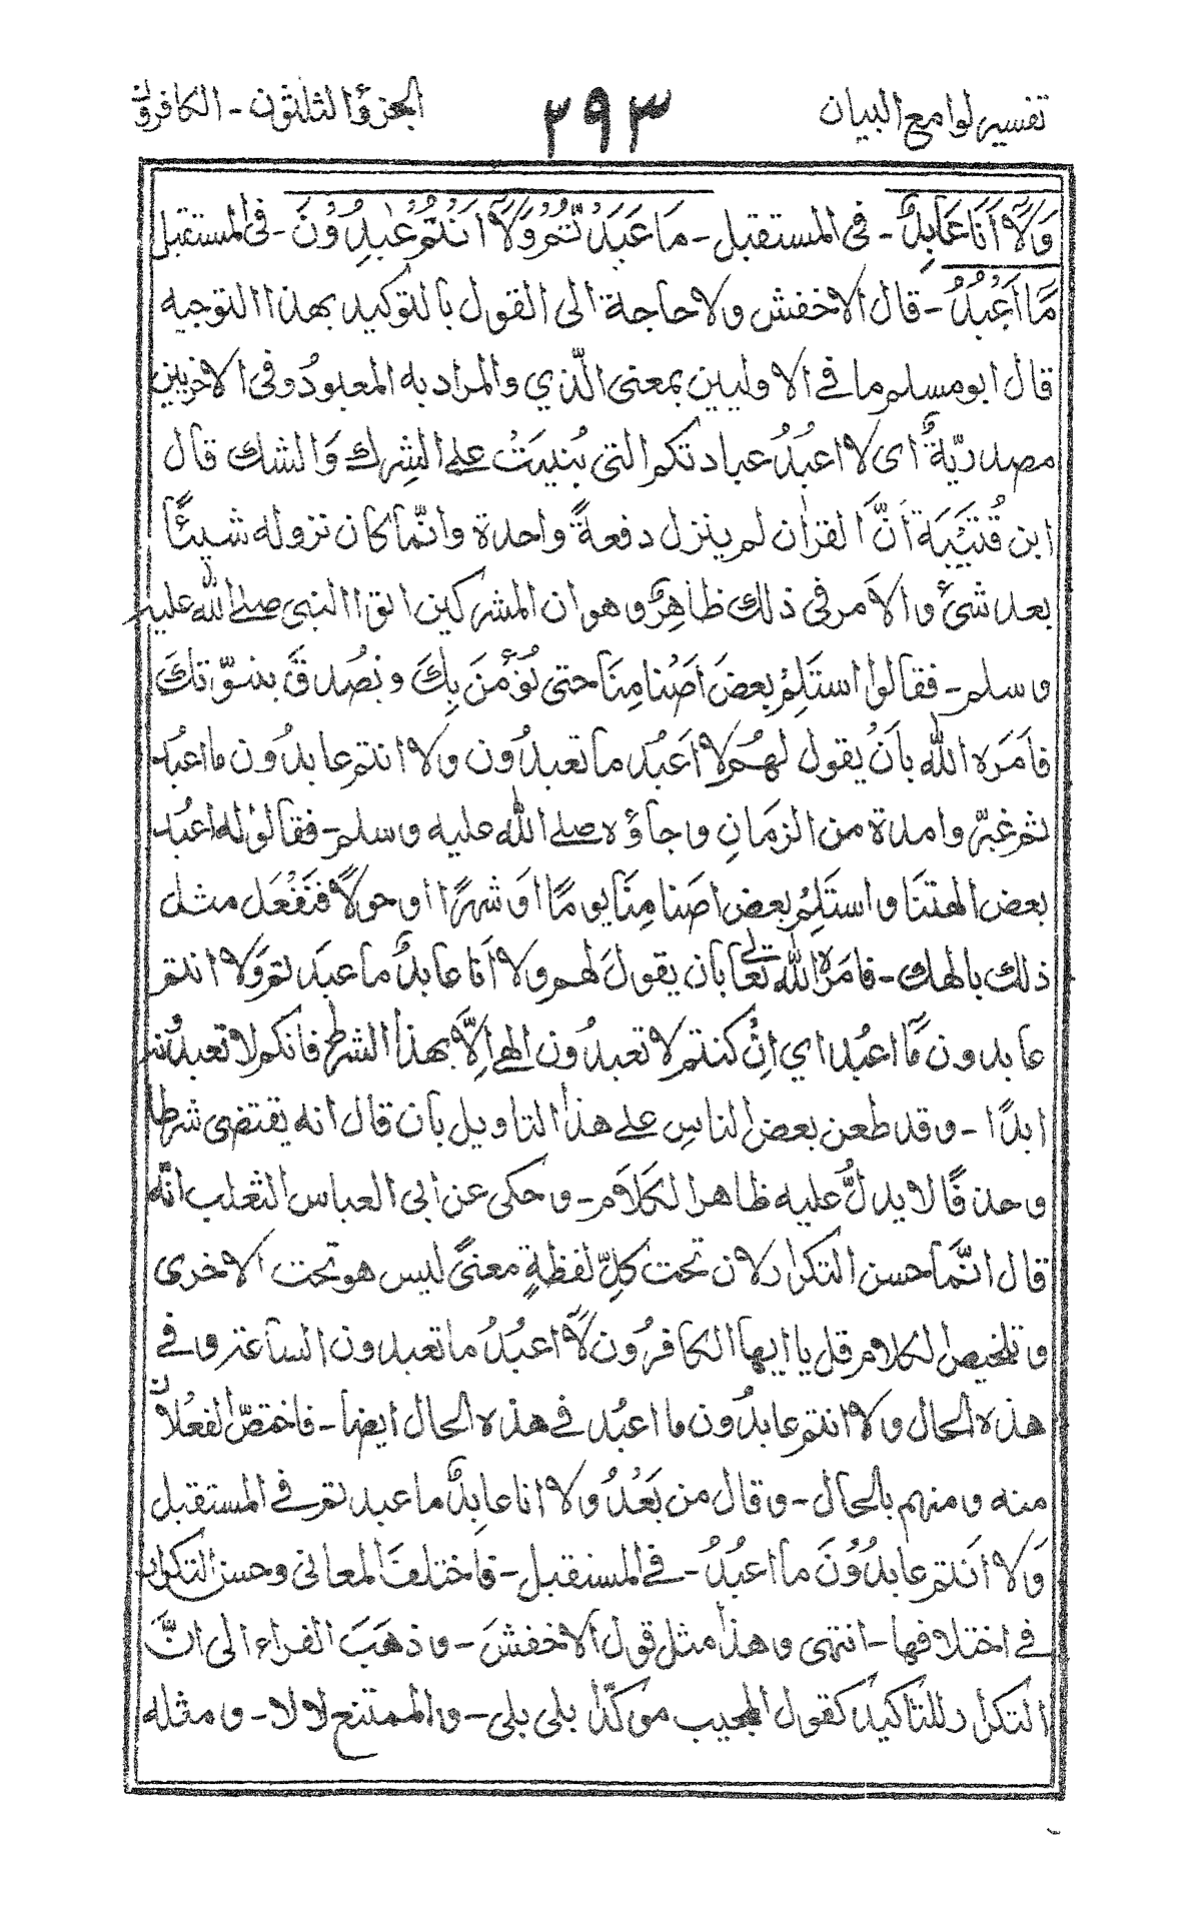 تفسير لوامع البيان ٢٩٣ الجزؤ الثلثون - الكافرون
وَلَآ اَنَا عَابِدٌ - فى المستقبل - مَا عَبَدْتُّمْ وَلَآ اَنْتُمْ عٰبِدُوْنَ - فى المستقبل
مَآ اَعْبُدُ - قال الاخفش ولا حاجة الى القول بالتوكيد بهذا التوجيه
قال ابو مسلم ما فے الا وليين بمعنى الّذي والمراد به المعبودُ وفى الاخريين
مصدريّةٌ اى لا اعبُدُ عبادتكم التى بُنيَتْ على الشِرك وَالشك قال
ابن قُتَيْبَة اَنَّ القراٰن لم ينزل دفعةً واحدة وانّما كان نزوله شيئًا
بعد شئ والاَمر فى ذلك ظاهِرٌ وهو ان المشركين اتوا النبى صلے الله عليه
وسلم - فقالوا استَلِمْ بعضَ اَصْنامِنَا حتى نُؤْمنَ بِكَ ونُصْدقَ بنبوّتكَ
فاَمَرَه الله بأَنْ يقول لهُم لا اَعبُد ما تعبدُون ولا انتم عابدُون ما اعبُد
ثم غبرّوا مدة من الزمَانِ وجاؤه صلے الله عليه وسلم - فقالوا له اعبُد
بعض اٰلهتنَا واستَلِمْ بعض اصنامِنَا يومًا او شهرًا او حولًا فنَفْعَل مثل
ذلك بالٰهك - فامَرَهُ الله تعالٰى بان يقولَ لهم ولا اَنا عابدٌ ما عبَدتم وَلا انتم
عابدون مَآ اعبُد اي اِنْ كنتم لا تعبدُون الٰهي اِلَّا بهذا الشرط فانكم لا تعبدُونه
ابدًا - وقد طعن بعض الناسِ على هذا التاويل بأن قال انه يقتضى شرطا
وحذفًا لا يدلُّ عليه ظاهر الكَلاَم - وحكى عن ابى العباس الثعلب انّه
قال انَّما حسن التكرار لان تحت كلّ لفظةٍ معنىً ليس هو تحت الاخرى
وتلخيص الكلام قل يا ايها الكافرُون لَآ اعبُدُ ما تعبدون الساعة وفے
هذه الحال ولا انتم عابدُون ما اعبُد فے هذه الحال ايضا - فاختصّ الفعْلان
منه ومنهم بالحال - وقال من بَعْدُ ولا انا عابِدٌ ما عبدتم فے المستقبل
وَلا اَنتم عابدُوْنَ ما اعبُدُ - فے المستقبل - فاختلفَ المعانى وحسن التكرار
فے اختلافها - انتهى وهذا مثل قول الاخفشَ - وذهَبَ الفراء الى انَّ
التكرار للتاكيد كقول المجيب موكّدًا بلى بلى - والممتنع لا لا - ومثله